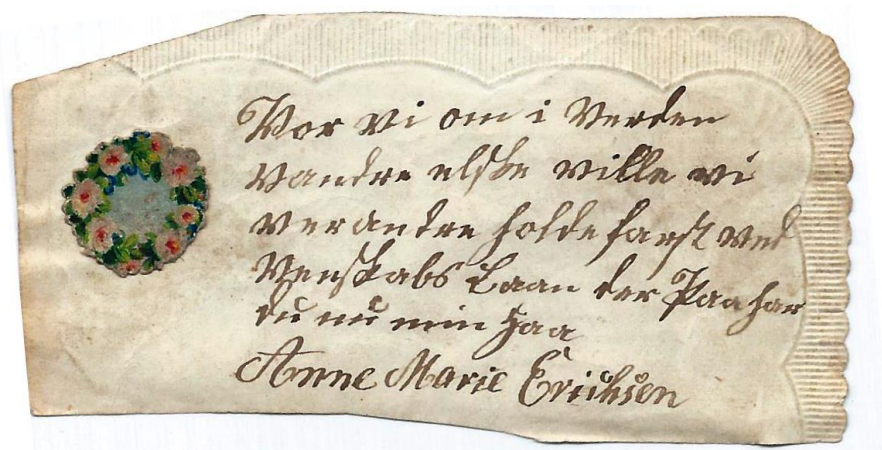 Vor vi om i Verden
vandre elske ville vi
verandre holde farst ved
Venskabs Baan der Paa har
du nu min haa
Anne Marie Erichsen